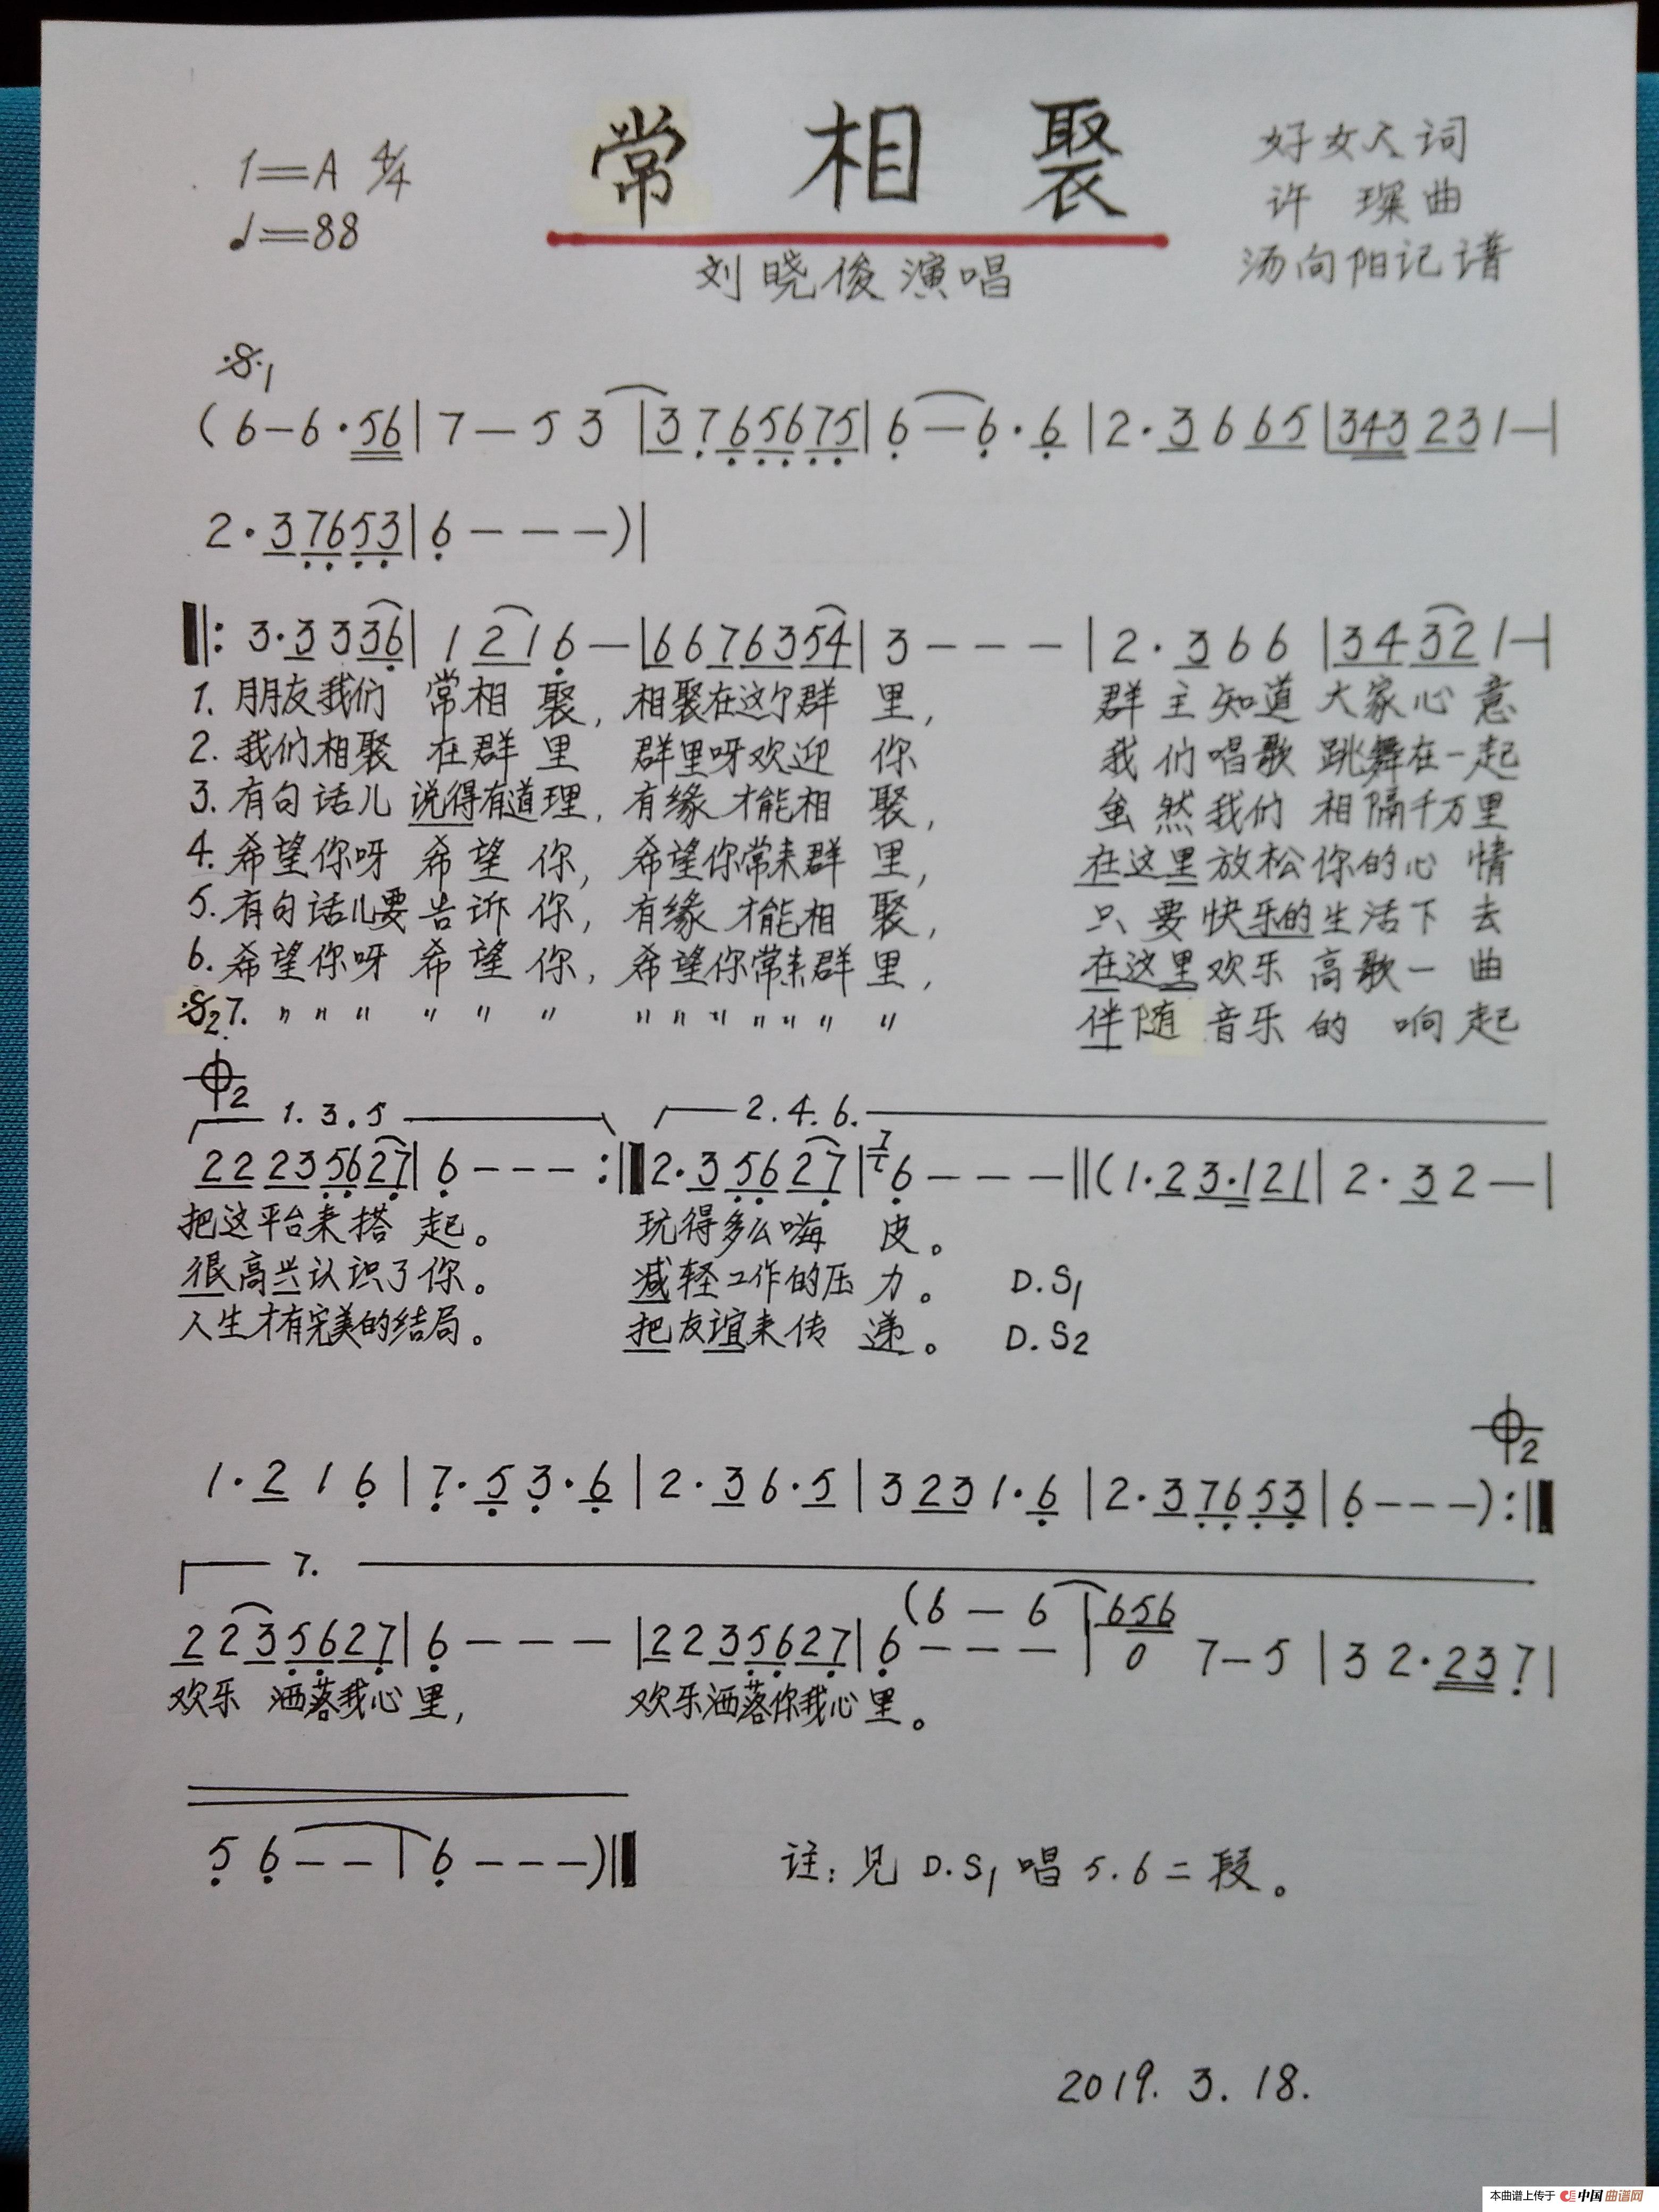 1=A 4/4
♩=88
常相聚
好女人词
许琛曲
汤向阳记谱
刘晓俊演唱
𝄋1
(6-6·56|7-53|3765675|6-6·6|2·3665|343231-|
2·37653|6---)|
‖:3·3336|1216-|6676354|3---|2·366|34321-|
1. 朋友我们 常相聚, 相聚在这个群里, 群主知道大家心意
2. 我们相聚 在群里 群里呀欢迎你 我们唱歌跳舞在一起
3. 有句话儿 说得有道理, 有缘才能相聚, 虽然我们相隔千万里
4. 希望你呀 希望你, 希望你常来群里, 在这里放松你的心情
5. 有句话儿要告诉你, 有缘才能相聚, 只要快乐的生活下去
6. 希望你呀 希望你, 希望你常来群里, 在这里欢乐高歌一曲
𝄋2 7. 〃〃〃〃〃〃 〃〃〃〃〃〃〃 伴随音乐的响起
𝄌2
1.3.5 2.4.6.
22235627|6---:‖2·35627|7 6---‖(1·23·121|2·32-|
把这平台来搭起。 玩得多么嗨皮。
很高兴认识了你。 减轻工作的压力。 D.S1
人生才有完美的结局。 把友谊来传递。 D.S2
𝄌2
1·216|7·53·6|2·36·5|3231·6|2·37653|6---):‖
7.
(6-6|656
2235627|6---|2235627|6---|0 7-5|32·237|
欢乐洒落我心里, 欢乐洒落你我心里。
56--|6---)‖
注:见D.S1唱5.6二段。
2019.3.18.
本曲谱上传于 中国曲谱网